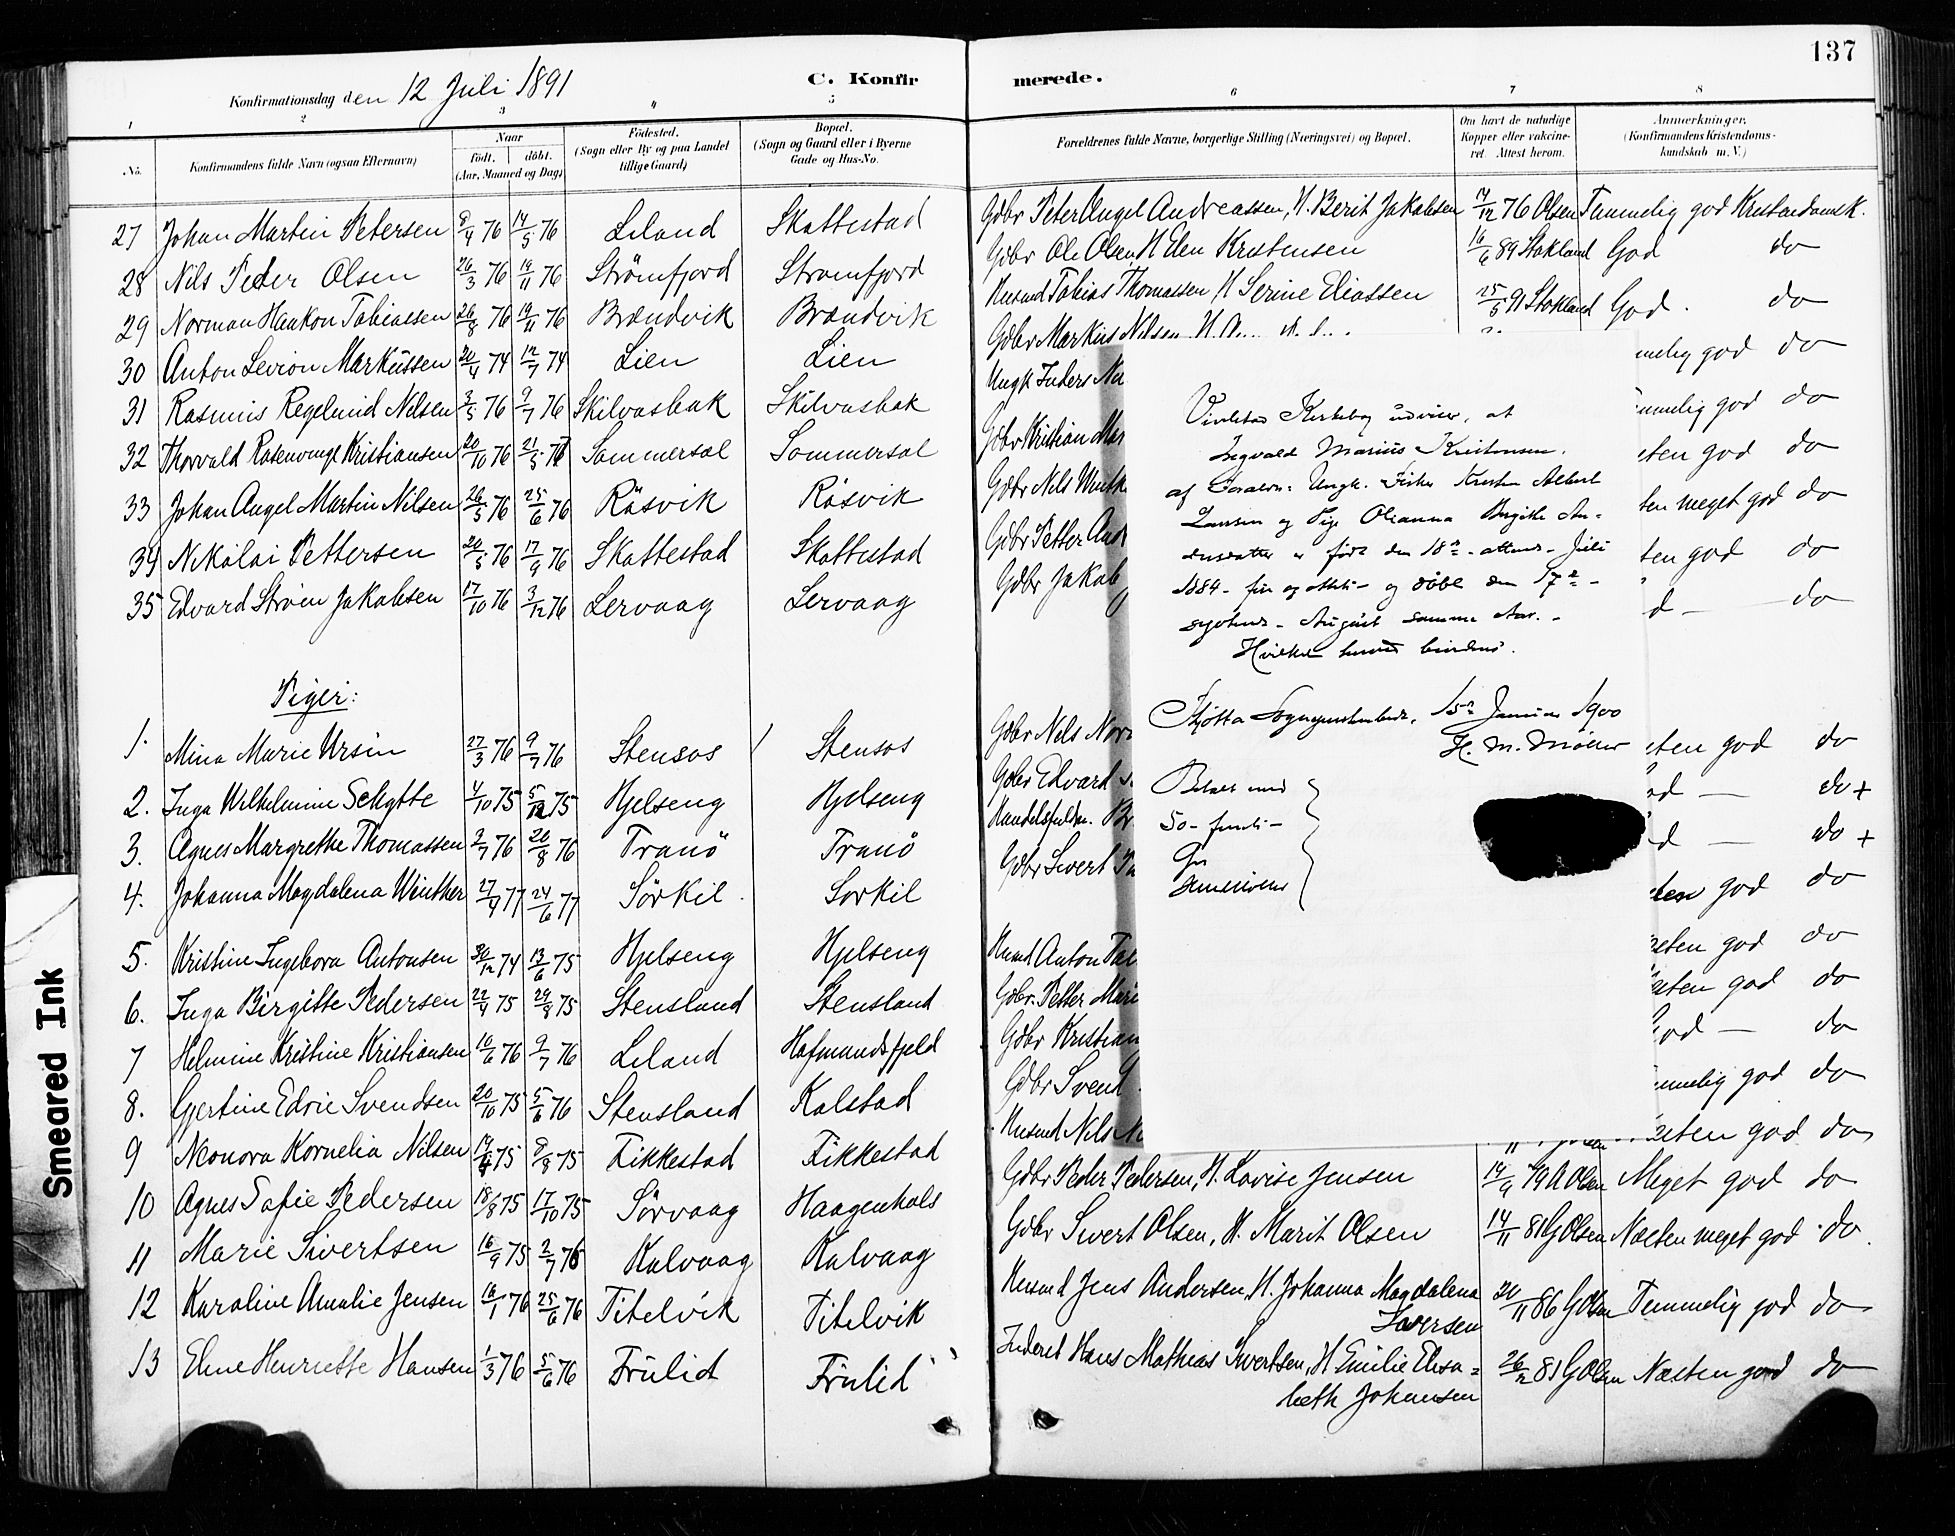 137
C. Konfirmerede.
Konfirmationsdag den 12 Juli 1891
1 2 3 4 5 6 7 8
No. Konfirmandens fulde Navn (ogsaa Efternavn) Naar født. døbt. (Aar, Maaned og Dag) Fødested. (Sogn eller By og paa Landet tillige Gaard) Bopæl. (Sogn og Gaard eller i Byerne Gade og Hus-No. Forældrenes fulde Navne, borgerlige Stilling (Næringsvei) og Bopæl. Om havt de naturlige Kopper eller vaccineret. Attest herom. Anmærkninger. (Konfirmandens Kristendomskundskab m.V.)
27 Johan Martin Petersen 8/4 76 14/5 76 Leland Skattestad Gdbr Peter Angel Andreassen, H. Berit Jakobsen 7/12 76 Olsen Temmelig god Kristendomsk.
28 Nils Peder Olsen 26/3 76 19/11 76 Strømfjord Strømfjord Gdbr Ole Olsen, H Elen Kristensen 16/6 89 Stokland God do
29 Norman Haakon Tobiassen 26/8 76 19/11 76 Brændvik Brændvik Husmd Tobias Thomassen H Serine Eliassen 25/5 91 Stokland God. do
30 Anton Levion Markussen 20/4 74 12/7 74 Lien Lien Gdbr Markus Nilsen melig god do
31 Rasmus Regelund Nilsen 3/5 76 9/7 76 Skilvasbak Skilvasbak Ungk Anders god do
32 Thorvald Rosenvinge Kristiansen 20/10 76 21/5 Sommersæl Sommersæl Gdbr Kristian Mar ten god do
33 Johan Angel Martin Nilsen 26/3 76 25/6 76 Røsvik Røsvik Gdbr Nils ten meget god do
34 Nikolai Pettersen 20/5 76 17/9 76 Skattestad Skattestad Gdbr Petter And ten god do
35 Edvard Strøm Jakobsen 17/10 76 3/12 76 Lervaag Lervaag Gdbr Jakob d — do
Piger:
1. Mina Marie Ursin 27/3 76 9/7 76 Stensøs Stensøs Gdbr Nils Nor ten god do
2. Inga Wilhelmine Schytte 4/10 75 5/12 75 Hjelseng Hjelseng Gdbr Edvard d — do +
3. Agnes Margrethe Thomassen 2/7 76 20/8 76 Tranø Tranø Handelsfuldm. d — do +
4. Johanna Magdalena Winther 27/4 77 24/6 77 Sørkil Sørkil Gdbr Sivert ten god do
5. Kristine Ingeborg Antonsen 30/12 74 13/6 75 Hjelseng Hjelseng Husmd Anton ten god do
6. Inga Birgitte Pedersen 22/4 75 29/8 75 Stensland Stensland Gdbr. Petter Mari sten god do
7 Helmine Kristine Kristiansen 10/6 76 9/7 76 Leland Hafmandsfjeld Gdbr Kristian od — do
8. Gjertine Edvie Svendsen 20/10 75 5/6 76 Stensland Kalstad Gdbr Svend melig god do
9 Neonora Kornelia Nilsen 14/4 75 8/8 75 Fikkestad Fikkestad Husmd Nils sten god do
10 Agnes Sofie Pedersen 18/8 75 17/10 75 Sørvaag Haagenhals Gdbr Peder Pedersen, H. Lovise Jensen 14/9 79 A Olsen Meget god do
11 Marie Sivertsen 16/9 75 2/7 76 Kalvaag Kalvaag Gdbr Sivert Olsen, H. Marit Olsen 14/11 81 G Olsen Næsten meget god do
12 Karoline Amalie Jensen 16/1 76 25/6 76 Titelvik Titelvik Husmd Jens Andersen, H. Johanna Magdalena Iversen 20/11 86 G Olsen Temmelig god do
13 Elme Henriette Hansen 1/3 76 5/6 76 Frülid Frülid Inderst Hans Mathias Sivertsen, H Emilie Elisabeth Johansen 26/12 81 G Olsen Næsten god do
Kirkebog udviser, at
Ingvald Marius Kristensen.
af Foræld: Ungk. Fisker Kristen Albert
Larsen og Pige Olianna Birgithe
er født den 18de - attende - Juli
1884 - fire og otteti - og døbt den 17de -
syttende - August samme Aar. -
Hvilket herved bevidnes.
Tjøtta Sogneprestembede, 15de Januar 1900
H. M. Møller
Betalt med
50 - femti -
Øre
HMMøller
Smeared Ink